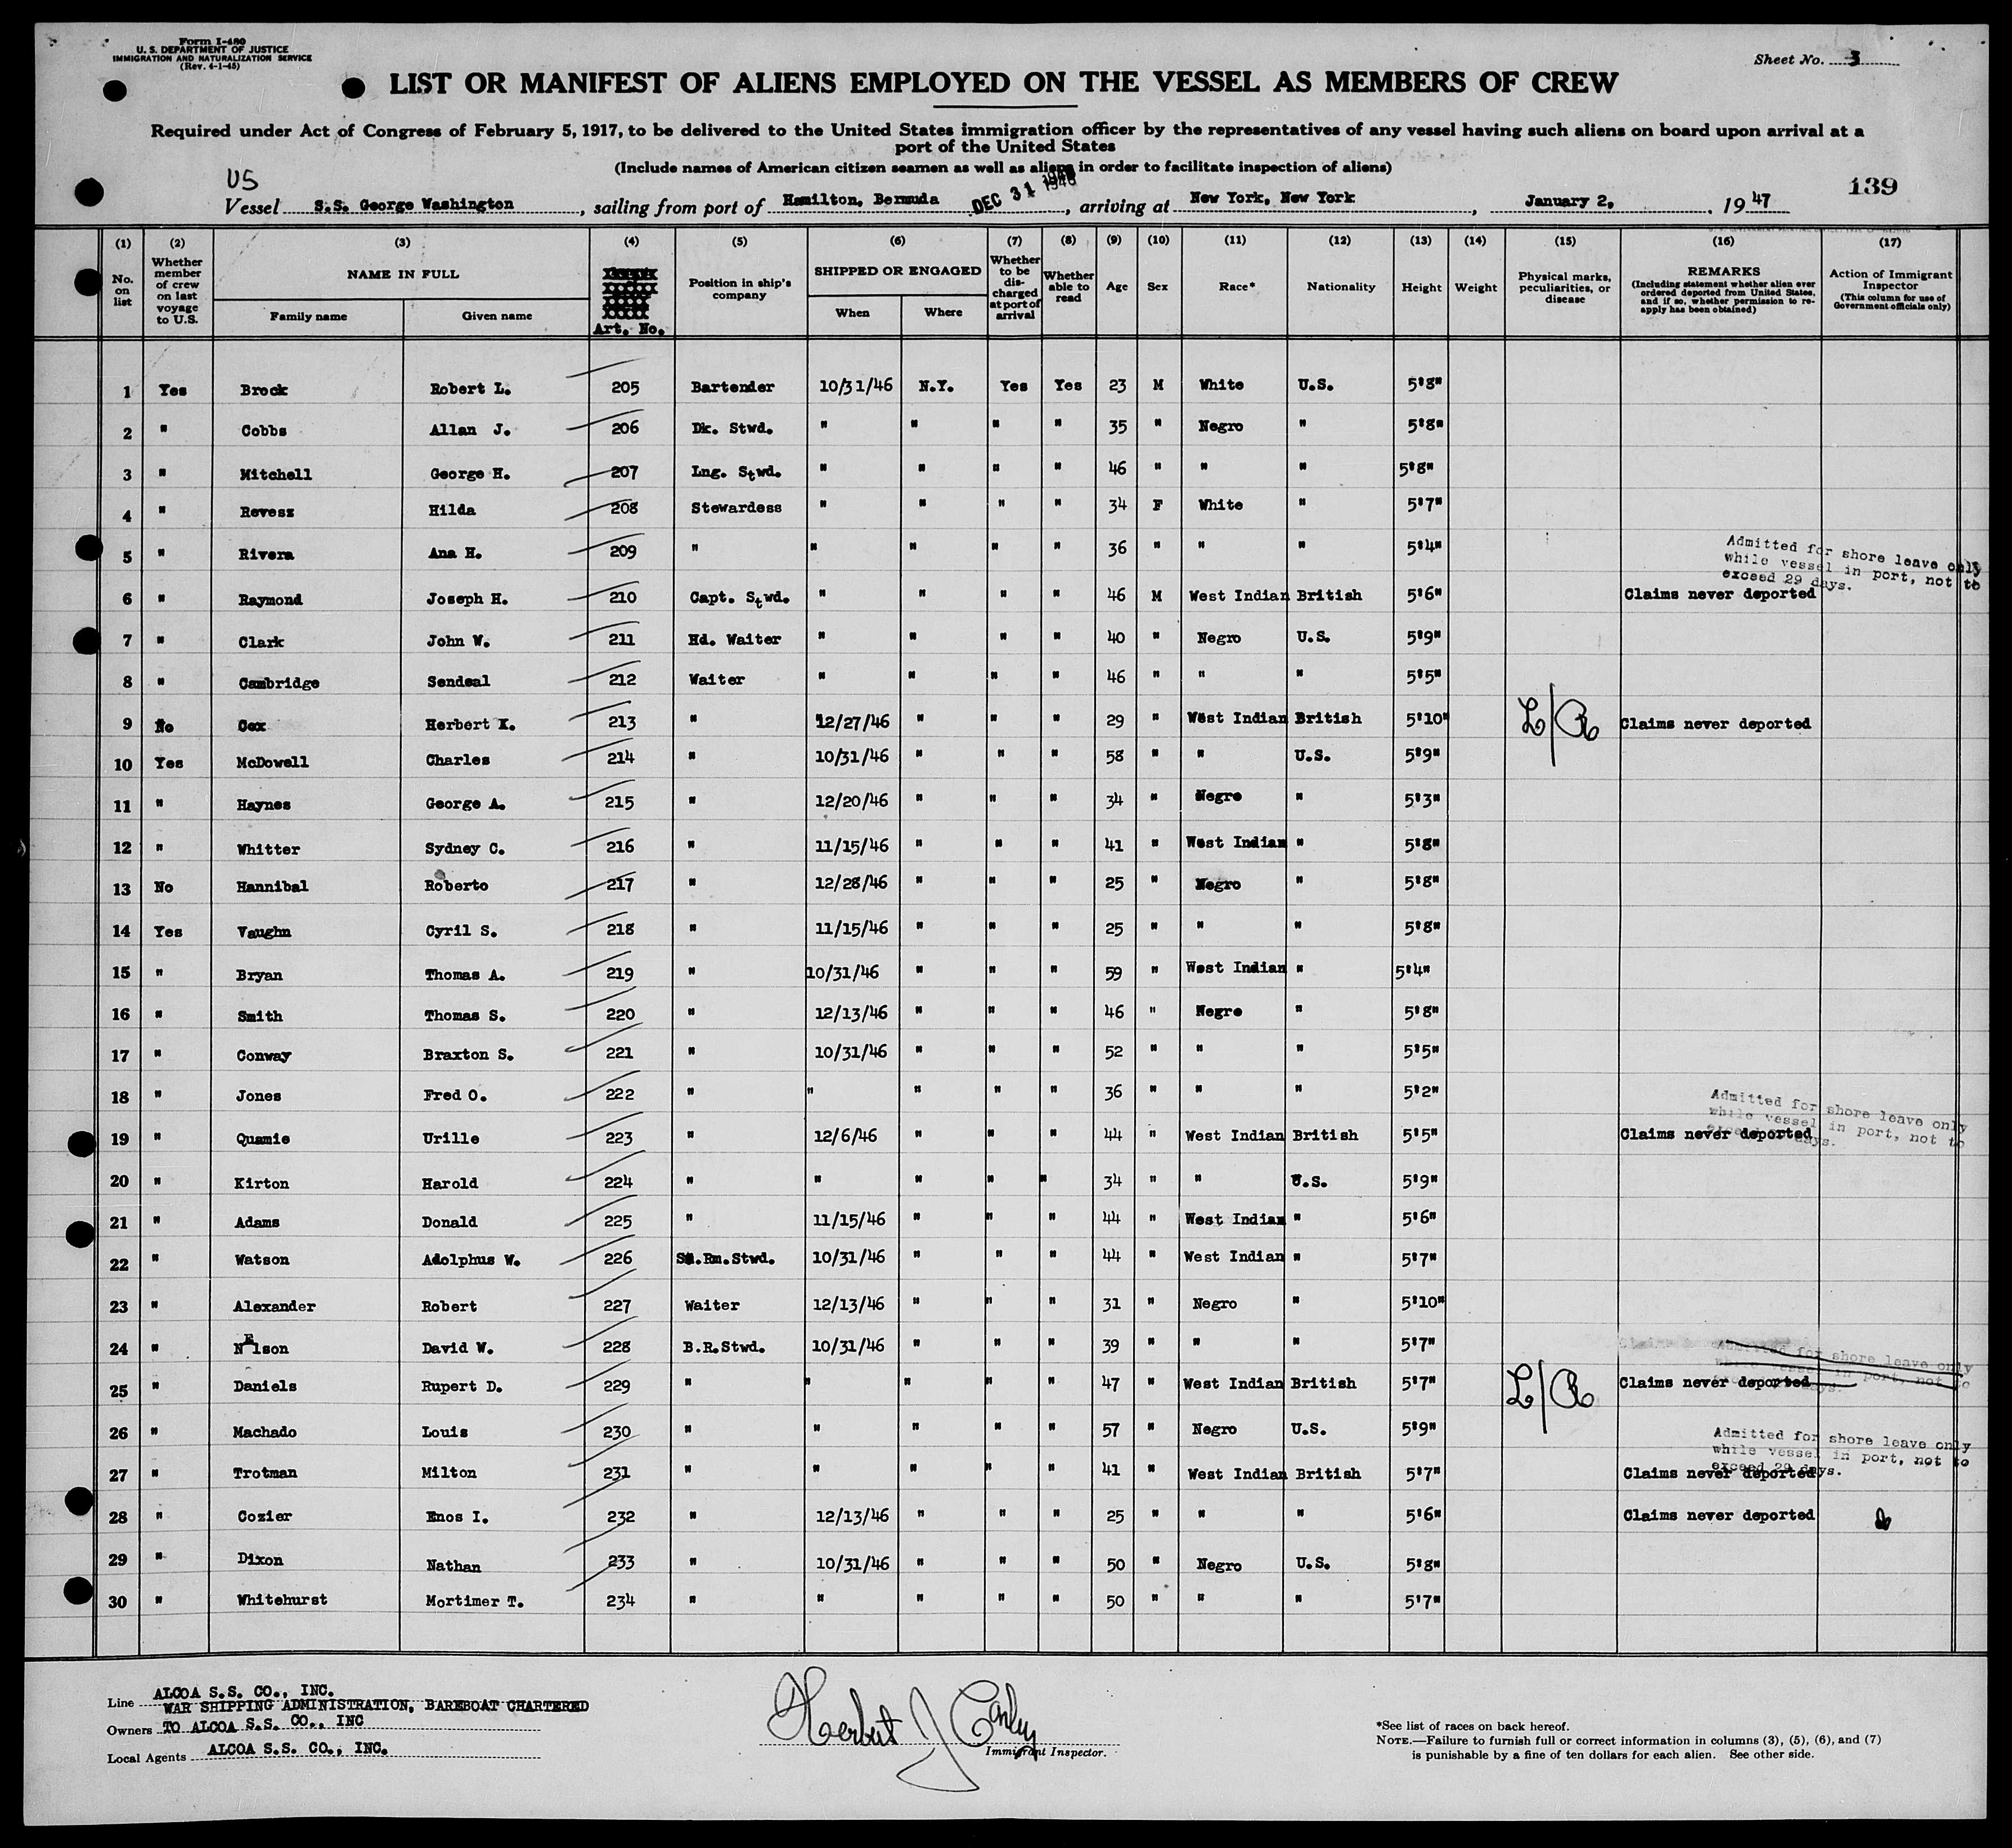 Form I-480
U. S. DEPARTMENT OF JUSTICE
IMMIGRATION AND NATURALIZATION SERVICE
(Rev. 4-1-45)
Sheet No. 3
LIST OR MANIFEST OF ALIENS EMPLOYED ON THE VESSEL AS MEMBERS OF CREW
Required under Act of Congress of February 5, 1917, to be delivered to the United States immigration officer by the representatives of any vessel having such aliens on board upon arrival at a
port of the United States
(Include names of American citizen seamen as well as aliens in order to facilitate inspection of aliens)
US
139
Vessel S.S. George Washington, sailing from port of Hamilton, Bermuda DEC 31 1946, arriving at New York, New York, January 2, 1947
(1) (2) (3) (4) (5) (6) (7) (8) (9) (10) (11) (12) (13) (14) (15) (16) (17)
No. on list
Whether member of crew on last voyage to U.S.
NAME IN FULL
Family name Given name
Art. No.
Position in ship's company
SHIPPED OR ENGAGED
When Where
Whether to be discharged at port of arrival
Whether able to read
Age Sex Race* Nationality Height Weight
Physical marks, peculiarities, or disease
REMARKS
(Including statement whether alien ever ordered deported from United States, and if so, whether permission to reapply has been obtained)
Action of Immigrant Inspector
(This column for use of Government officials only)
1 Yes Brock Robert L. 205 Bartender 10/31/46 N.Y. Yes Yes 23 M White U.S. 5'8"
2 " Cobbs Allan J. 206 Dk. Stwd. " " " " 35 " Negro " 5'8"
3 " Mitchell George H. 207 Lng. Stwd. " " " " 46 " " " 5'8"
4 " Revesz Hilda 208 Stewardess " " " " 34 F White " 5'7"
5 " Rivera Ana H. 209 " " " " " 36 " " " 5'4"
Admitted for shore leave only
while vessel in port, not to
exceed 29 days.
6 " Raymond Joseph H. 210 Capt. Stwd. " " " " 46 M West Indian British 5'6" Claims never deported
7 " Clark John W. 211 Hd. Waiter " " " " 40 " Negro U.S. 5'9"
8 " Cambridge Sendeal 212 Waiter " " " " 46 " " " 5'5"
9 No Cox Herbert X. 213 " 12/27/46 " " " 29 " West Indian British 5'10" Claims never deported
10 Yes McDowell Charles 214 " 10/31/46 " " " 58 " " U.S. 5'9"
11 " Haynes George A. 215 " 12/20/46 " " " 34 " Negro " 5'3"
12 " Whitter Sydney C. 216 " 11/15/46 " " " 41 " West Indian " 5'8"
13 No Hannibal Roberto 217 " 12/28/46 " " " 25 " Negro " 5'8"
14 Yes Vaughn Cyril S. 218 " 11/15/46 " " " 25 " " " 5'8"
15 " Bryan Thomas A. 219 " 10/31/46 " " " 59 " West Indian " 5'4"
16 " Smith Thomas S. 220 " 12/13/46 " " " 46 " Negro " 5'8"
17 " Conway Braxton S. 221 " 10/31/46 " " " 52 " " " 5'5"
18 " Jones Fred O. 222 " " " " " 36 " " " 5'2"
Admitted for shore leave only
while vessel in port, not to
exceed 29 days.
19 " Quamie Urille 223 " 12/6/46 " " " 44 " West Indian British 5'5" Claims never deported
20 " Kirton Harold 224 " " " " " 34 " " U.S. 5'9"
21 " Adams Donald 225 " 11/15/46 " " " 44 " West Indian " 5'6"
22 " Watson Adolphus W. 226 Sm.Rm.Stwd. 10/31/46 " " " 44 " West Indian " 5'7"
23 " Alexander Robert 227 Waiter 12/13/46 " " " 31 " Negro " 5'10"
24 " Nelson David W. 228 B.R.Stwd. 10/31/46 " " " 39 " " " 5'7"
Admitted for shore leave only
while vessel in port, not to
25 " Daniels Rupert D. 229 " " " " " 47 " West Indian British 5'7" Claims never deported
26 " Machado Louis 230 " " " " " 57 " Negro U.S. 5'9"
Admitted for shore leave only
while vessel in port, not to
exceed 29 days.
27 " Trotman Milton 231 " " " " " 41 " West Indian British 5'7" Claims never deported
28 " Cozier Enos I. 232 " 12/13/46 " " " 25 " " " 5'6" Claims never deported
29 " Dixon Nathan 233 " 10/31/46 " " " 50 " Negro U.S. 5'8"
30 " Whitehurst Mortimer T. 234 " " " " " 50 " " " 5'7"
Line ALCOA S.S. CO., INC.
WAR SHIPPING ADMINISTRATION, BAREBOAT CHARTERED
Owners TO ALCOA S.S. CO., INC
Local Agents ALCOA S.S. CO., INC.
Herbert J
Immigrant Inspector.
*See list of races on back hereof.
NOTE.—Failure to furnish full or correct information in columns (3), (5), (6), and (7)
is punishable by a fine of ten dollars for each alien. See other side.